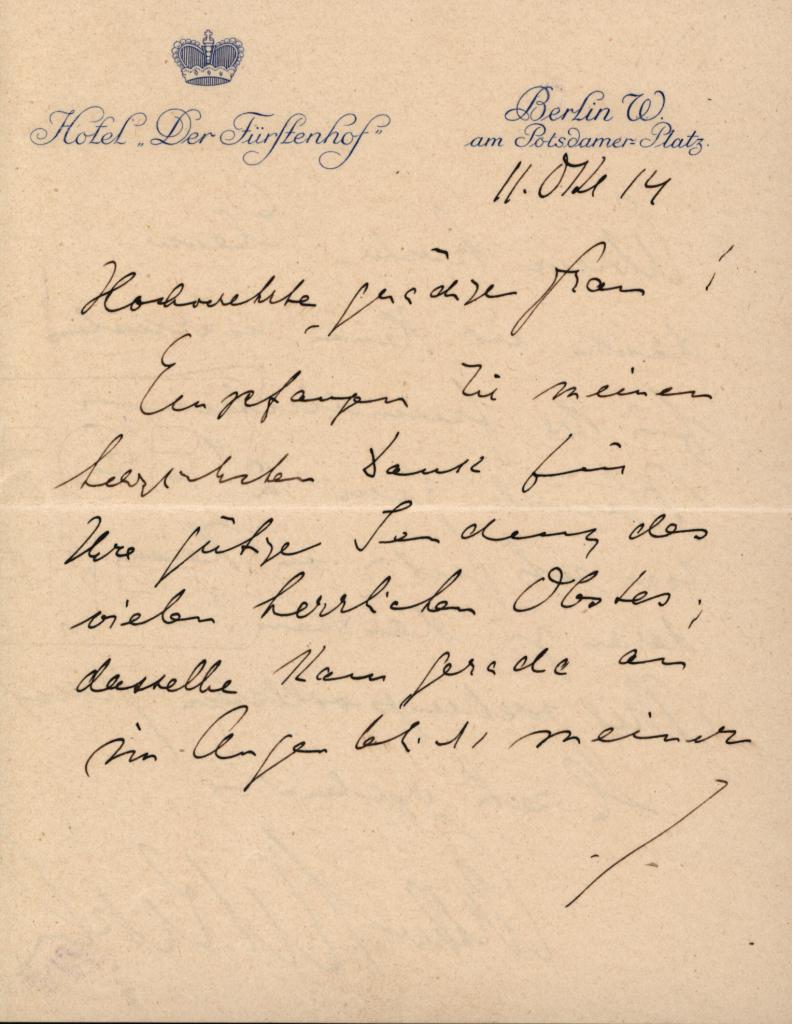 Hotel „Der Fürstenhof"
Berlin W.
am Potsdamer-Platz.
11. Okt 14
Hochverehrte gnädige Frau!
Empfangen Sie meinen
herzlichsten Dank für
Ihre gütige Sendung des
vielen herrlichen Obstes;
dasselbe kam gerade an
im Augenblick meiner
./.